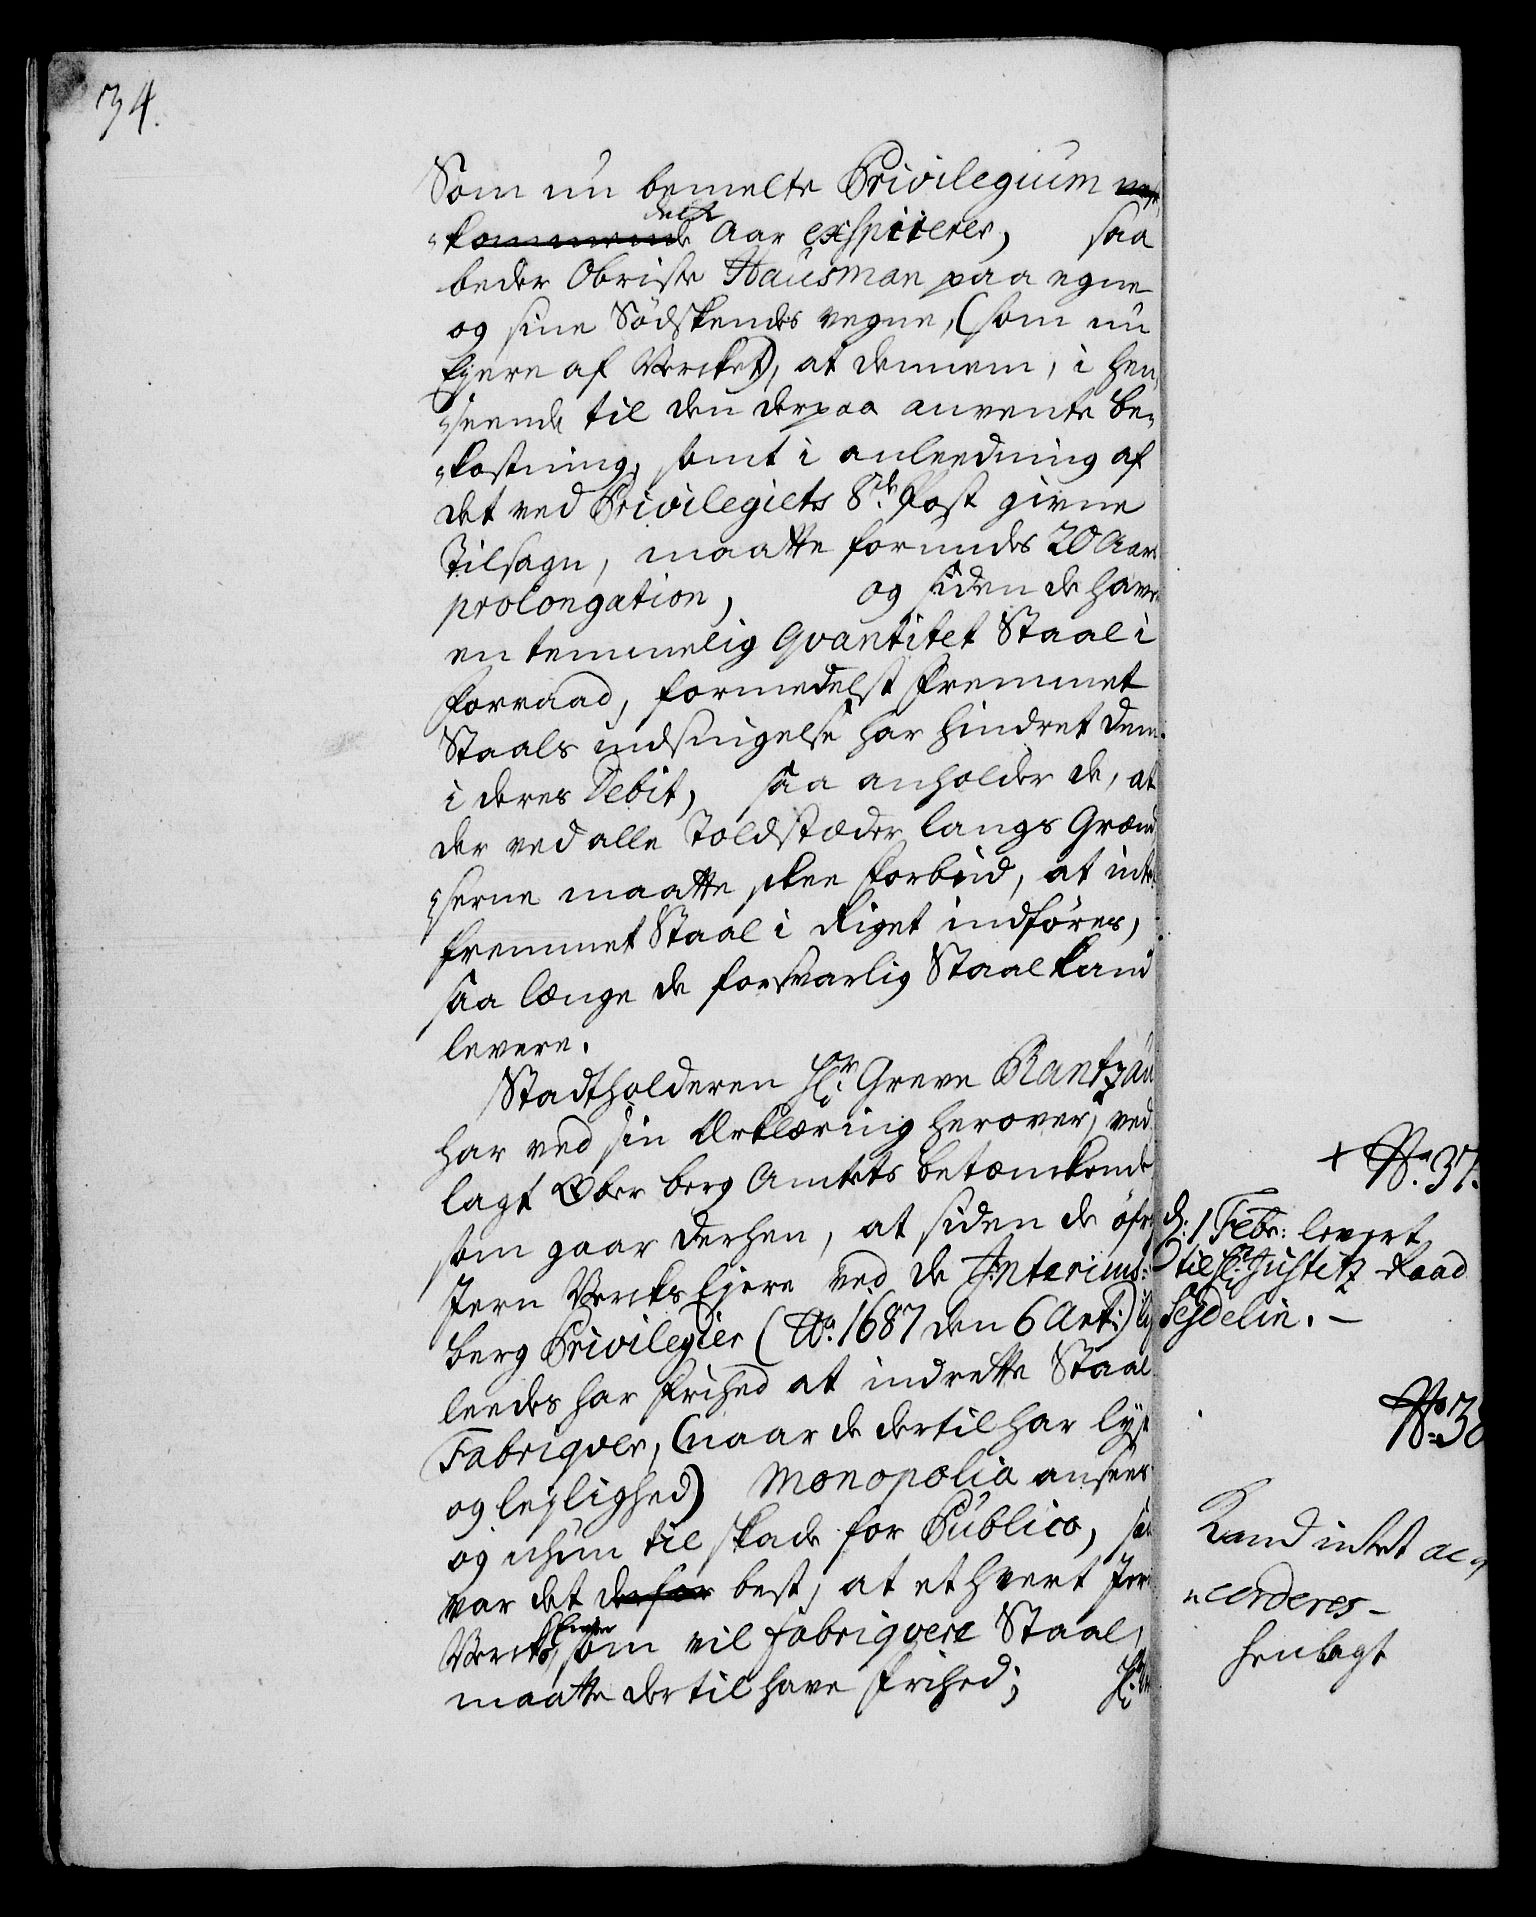 34.
Som nu bemelte Privilegium
dette
kommende Aar exspirerer, saa
beder Obriste Hausman paa egne
og sine Södskendes vegne, (som nu
Ejere af Vercket), at dennem, i hen¬
seende til den derpaa anvente be¬
kostning, samt i anleedning af
det ved Privilegiets 8de Post givne
Tilsagn, maatte forundes 20 Aars
prolongation, og siden de have
en temmelig Qvantitet Staal i
forraad, formedelst fremmet
Staals indsnigelse har hindret dem
i deres Debit, saa anholder de, at
der ved alle Toldstæder langs Græn¬
serne maatte skee forbud, at intet
fremmet Staal i Riget indföres,
saa længe de forsvarlig Staal kand
levere.
Stadtholderen Hr: Greve Rantzau
har ved sin Erklæring herover, ved¬
lagt Ober berg Amtets betænkende,
som gaar derhen, at siden de öfr.
Jern Vercks Ejere ved de Interims
berg Privilegier (Ao. 1687 den 6 Art:) lig
leedes har frihed at indrette Staal
Fabriqver, (naar de dertil har lyst
og lejlighed) Monopolia ansees
og uhun til skade for Publico, saa
var det derfor best, at ethvert Jern
Ejere
Vercks, som vil fabriqvere Staal,
maatte dertil have frihed; Hr:
+ No. 37.
d: 1 Febr: levert
til Hr: Justitz Raad
Sejdelin. –
No. 38
Kand intet ac¬
corderes –
henlagt